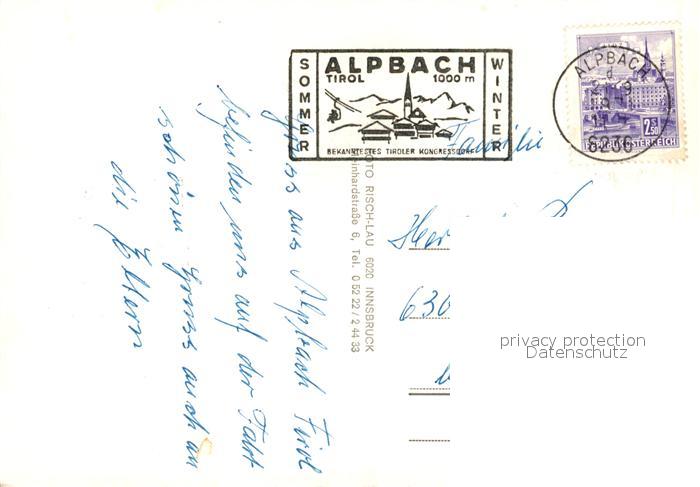 SOMMER
ALPBACH
TIROL 1000 m
WINTER
BEKANNTESTES TIROLER KONGRESSDORF
ALPBACH
2,50
REPUBLIK ÖSTERREICH
Familie
Her
630
privacy protection
Datenschutz
OTO RISCH-LAU 6020 INNSBRUCK
einhardstraße 6, Tel. 0 52 22 / 2 44 33
aus Alpbach Tirol
befinden uns auf der Fahrt
schönen Gruss auch an
die Eltern